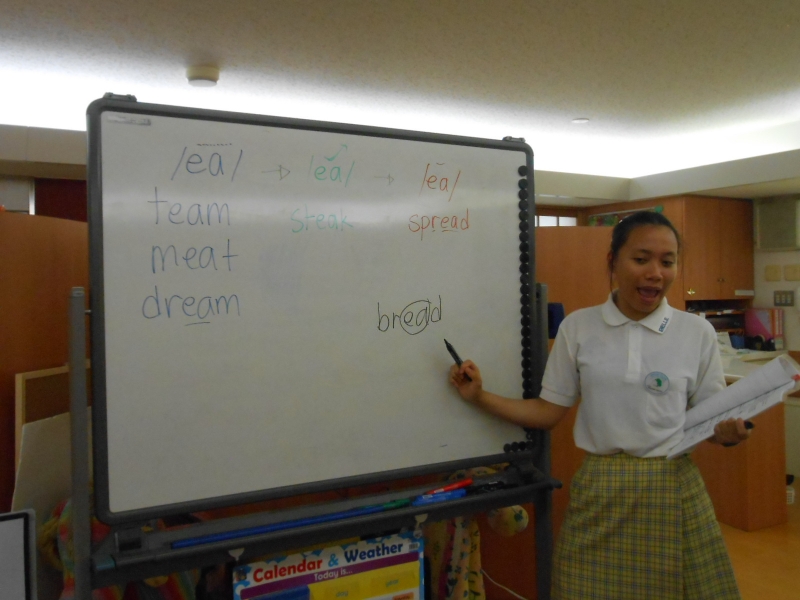 /ea/ → /ea/ → /ea/
team steak spread
meat
dream
bread
Calendar & Weather
Today is...